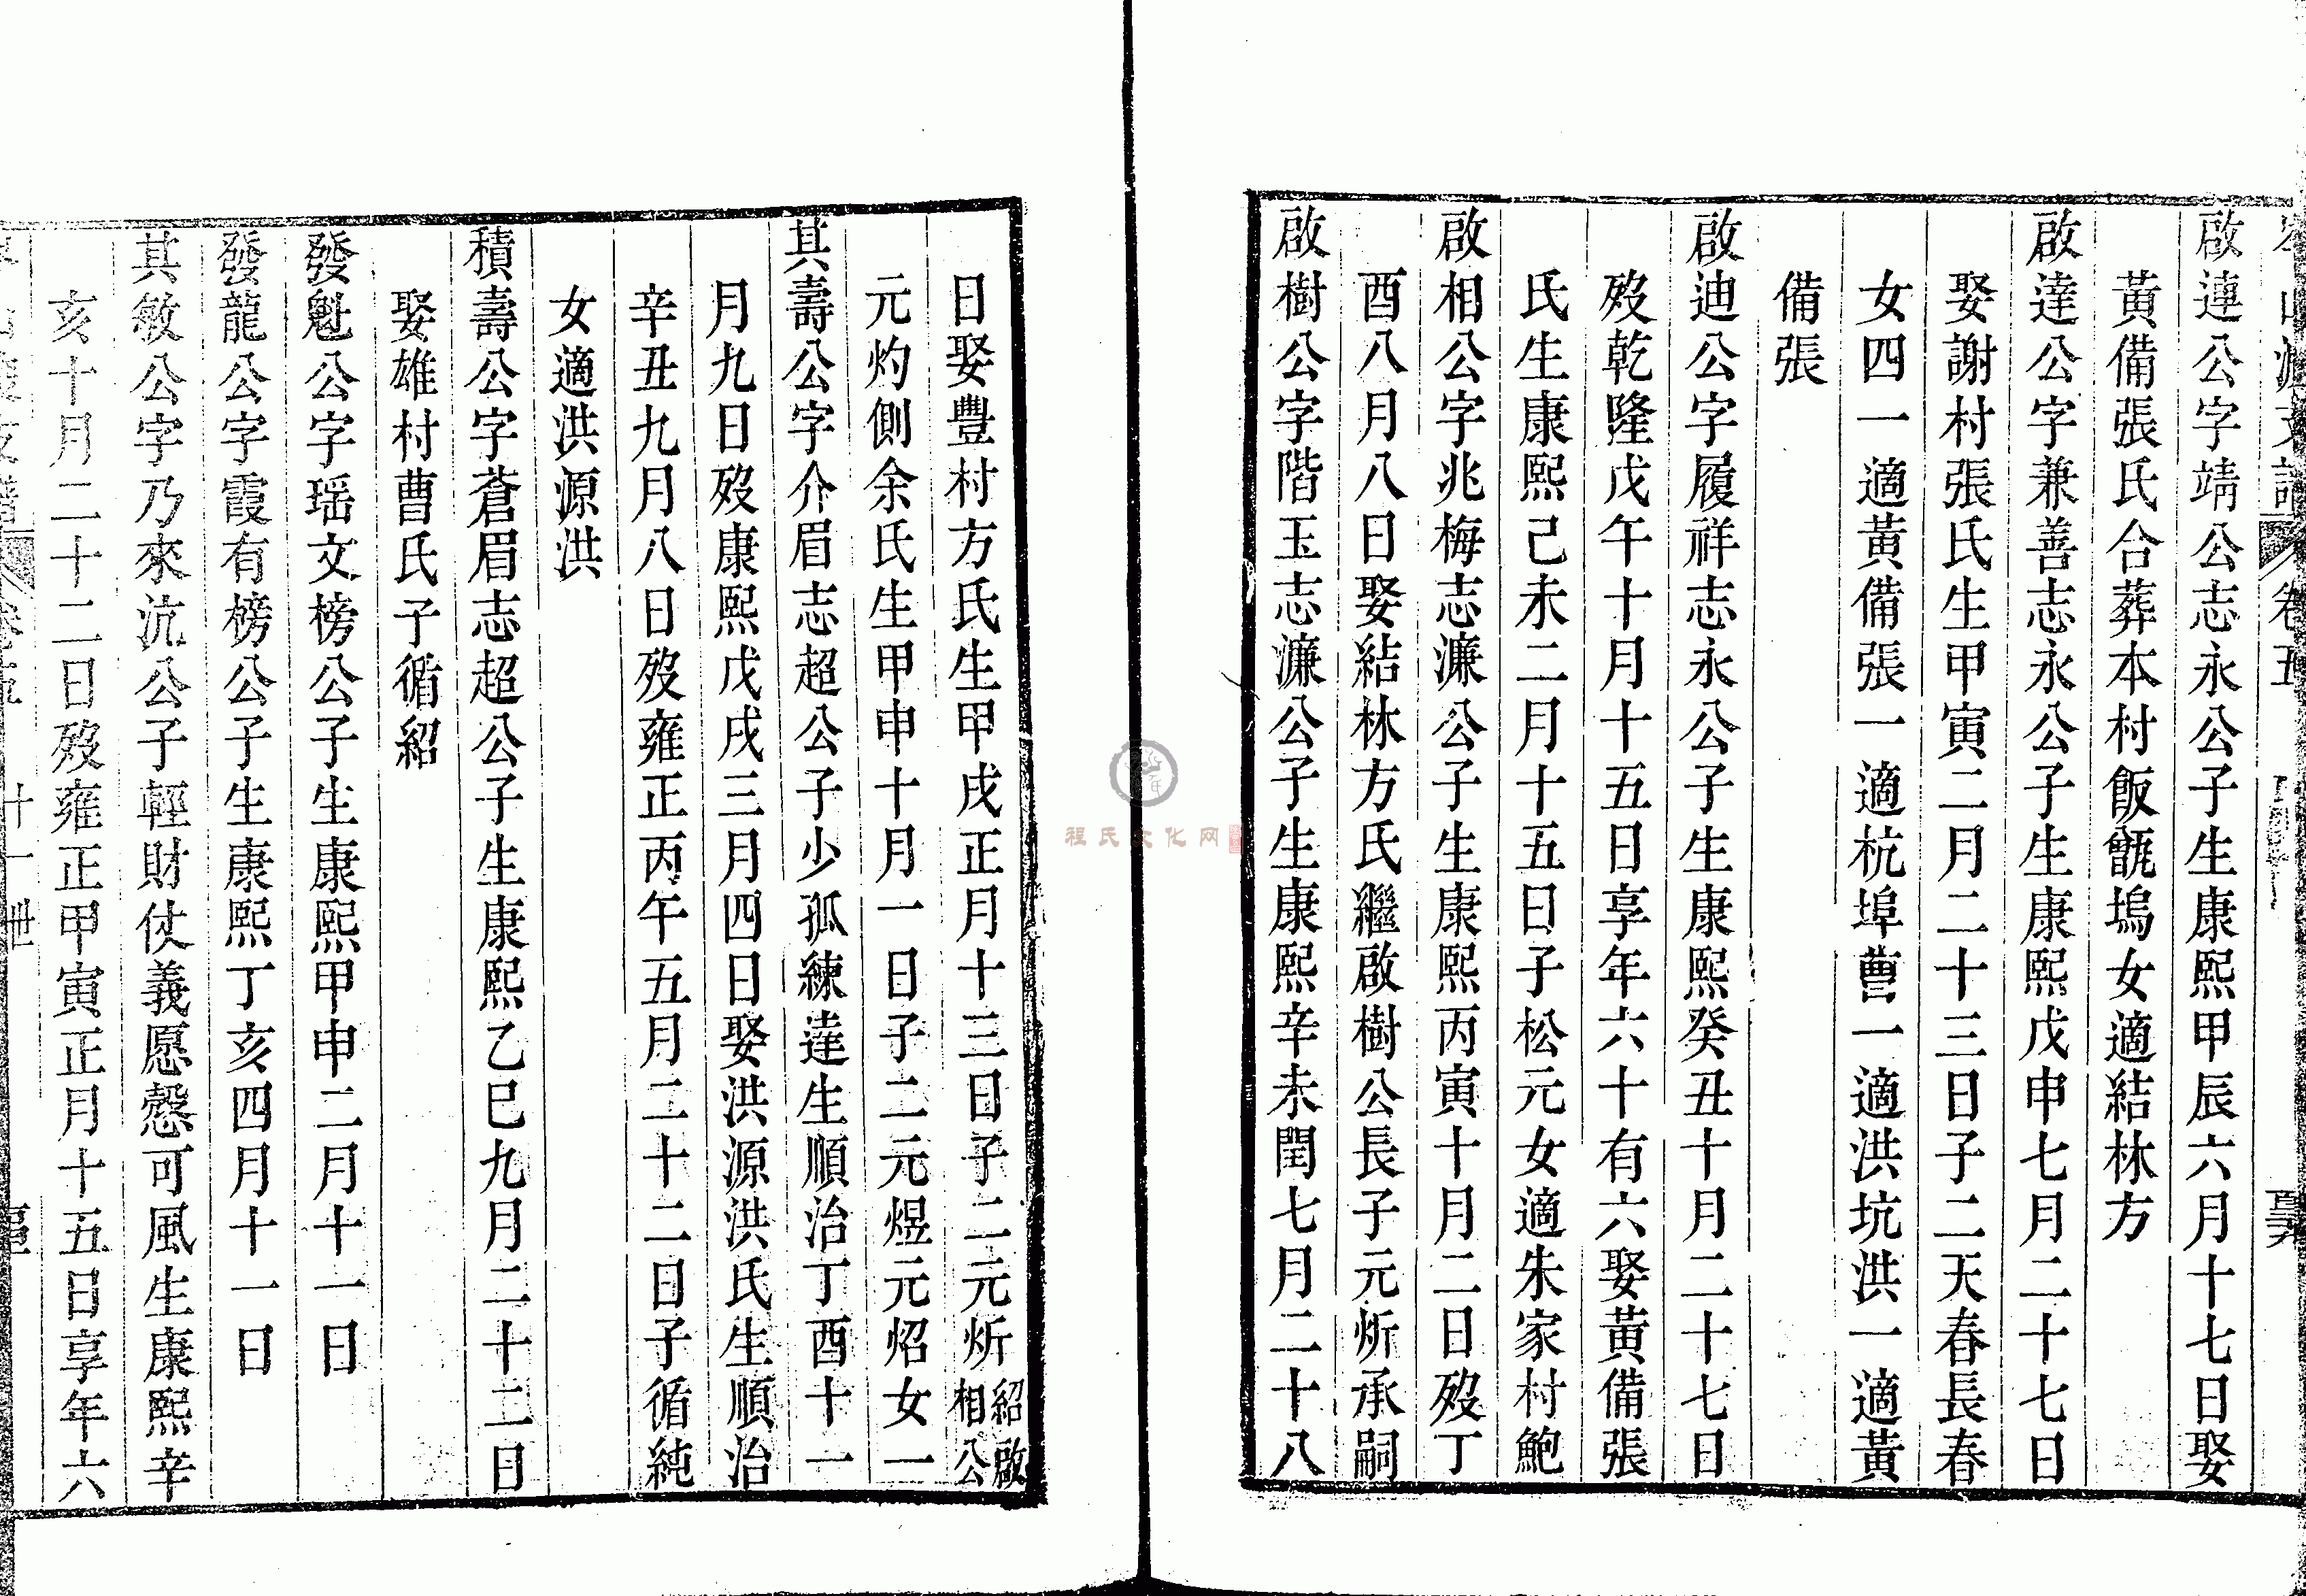 啟連公字靖公志永公子生康熙甲辰六月十七日娶
黃備張氏合葬本村飯甑塢女適結林方
啟達公字兼善志永公子生康熙戊申七月二十七日
娶謝村張氏生甲寅二月二十三日子二天春長春
女四一適黃備張一適杭埠曹一適洪坑洪一適黃
備張
啟迪公字履祥志永公子生康熙癸丑十月二十七日
歿乾隆戊午十月十五日享年六十有六娶黃備張
氏生康熙己未二月十五日子松元女適朱家村鮑
啟相公字兆梅志濂公子生康熙丙寅十月二日歿丁
酉八月八日娶結林方氏繼啟樹公長子元炘承嗣
啟樹公字階玉志濂公子生康熙辛未閏七月二十八
日娶豐村方氏生甲戌正月十三日子二元炘紹啟相公
元灼側余氏生甲申十月一日子二元煜元炤女一
其壽公字介眉志超公子少孤練達生順治丁酉十一
月九日歿康熙戊戌三月四日娶洪源洪氏生順治
辛丑九月八日歿雍正丙午五月二十二日子循純
女適洪源洪
積壽公字蒼眉志超公子生康熙乙巳九月二十二日
娶雄村曹氏子循紹
發魁公字瑶文榜公子生康熙甲申二月十一日
發龍公字霞有榜公子生康熙丁亥四月十一日
其敏公字乃來沆公子輕財仗義愿慤可風生康熙辛
亥十月二十二日歿雍正甲寅正月十五日享年六
卷五
十一世
程氏文化网